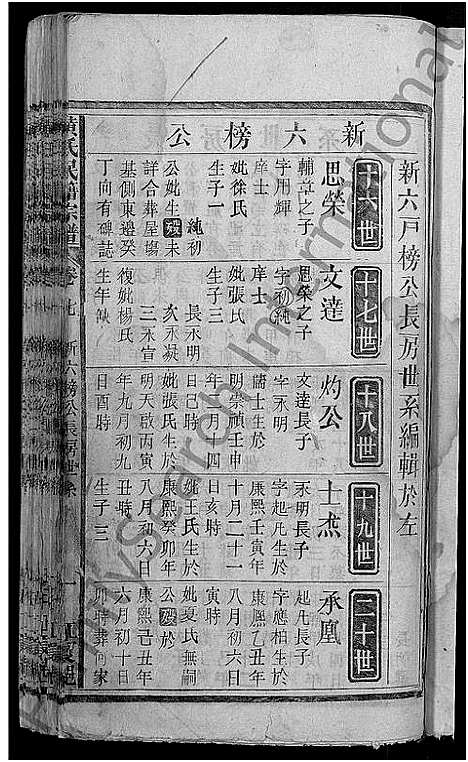 新六戶榜公長房世系編輯於左
新六榜公
十六世
思榮
輔章之子
字用輝
庠士
妣徐氏
生子一
純初
公妣生歿未
詳合葬屋塲
基側東邊癸
丁向有碑誌
十七世
文達
思榮之子
字初純
庠士
妣張氏
生子三
長永明
次永凝
三永宣
復妣楊氏
生年缺
十八世
灼公
文達長子
字永明
儒士生於
明崇禎壬申
年二月四
日巳時
妣張氏生於
明天啟丙寅
年九月初九
日酉時
十九世
士杰
永明長子
字起凡生於
康熙壬寅年
十月二十一
日亥時
妣王氏生於
康熙癸卯年
八月初六日
丑時
生子三
二十世
承凰
起凡長子
字應柏生於
康熙乙丑年
八月初六日
寅時
妣夏氏無嗣
公歿於
康熙己丑年
六月初十日
卯時葬向家
黃氏民譜宗譜
卷七
新六榜公長房世系
一
Mysearch International